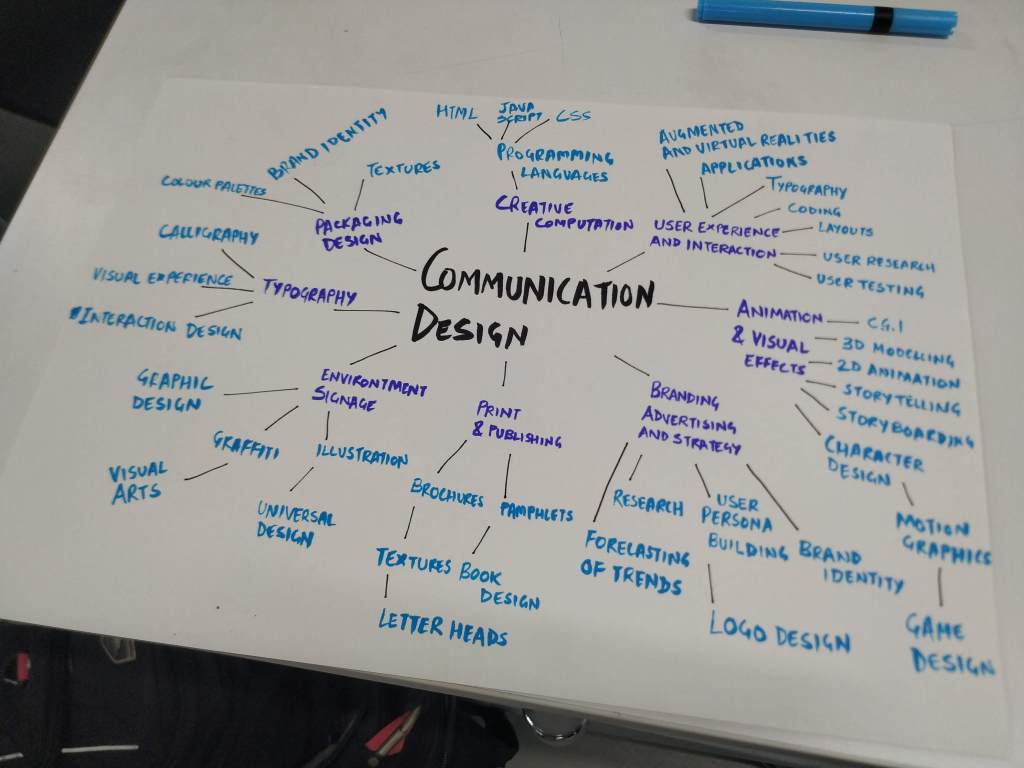 COMMUNICATION
DESIGN
CREATIVE
COMPUTATION
PROGRAMMING
LANGUAGES
HTML
JAVA
SCRIPT
CSS
USER EXPERIENCE
AND INTERACTION
AUGMENTED
AND VIRTUAL REALITIES
APPLICATIONS
TYPOGRAPHY
CODING
LAYOUTS
USER RESEARCH
USER TESTING
ANIMATION
& VISUAL
EFFECTS
C.G.I
3D MODELLING
2D ANIMATION
STORYTELLING
STORYBOARDING
CHARACTER
DESIGN
MOTION
GRAPHICS
GAME
DESIGN
BRANDING
ADVERTISING
AND STRATEGY
RESEARCH
FORECASTING
OF TRENDS
USER
PERSONA
BUILDING
LOGO DESIGN
BRAND
IDENTITY
PRINT
& PUBLISHING
BROCHURES
TEXTURES
LETTER HEADS
PAMPHLETS
BOOK
DESIGN
ENVIRONTMENT
SIGNAGE
GRAPHIC
DESIGN
GRAFFITI
VISUAL
ARTS
ILLUSTRATION
UNIVERSAL
DESIGN
TYPOGRAPHY
CALLIGRAPHY
VISUAL EXPERIENCE
INTERACTION DESIGN
PACKAGING
DESIGN
COLOUR PALETTES
BRAND IDENTITY
TEXTURES